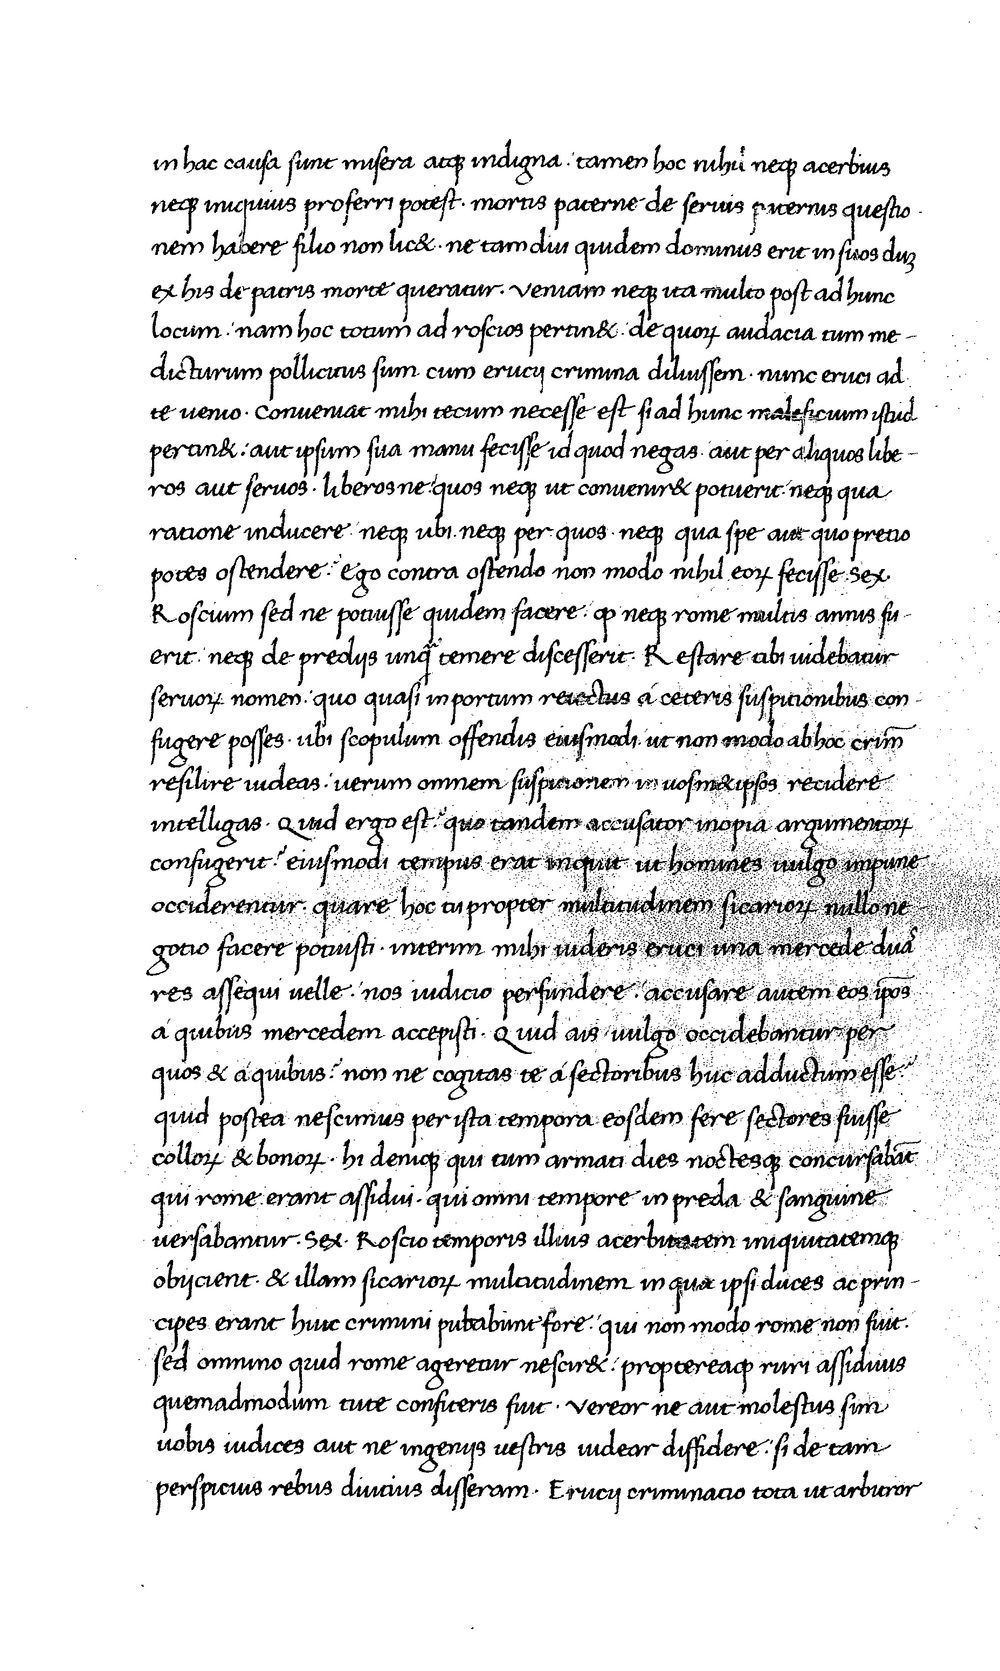 in hac causa sunt misera atq; indigna: tamen hoc nihil neq; acerbius
neq; iniquius proferri potest. mortis paterne de seruis paternis questio
nem habere filio non lic&. ne tam diu quidem dominus erit in suos duʒ
ex his de patris morte queratur. Veniam neq; ita multo post ad hunc
locum: nam hoc totum ad roscios pertin&: de quoꝝ audacia tum me-
dicturum pollicitus sum cum erucij crimina diluissem. nunc eruci ad
te uenio. Conueniat mihi tecum necesse est si ad hunc maleficium istud
pertin&: aut ipsum sua manu fecisse id quod negas. aut per aliquos libe-
ros aut seruos. liberos ne: quos neq; ut conuenir& potuerit: neq; qua
ratione inducere: neq; ubi. neq; per quos. neq; qua spe aut quo pretio
potes ostendere? Ego contra ostendo non modo nihil eoꝝ fecisse Sex.
Roscium sed ne potuisse quidem facere: ꝙ neq; rome multis annis fu-
erit: neq; de predijs unq̃ temere discesserit. Restare tibi uidebatur
seruoꝝ nomen: quo quasi in portum reiectus á ceteris suspitionibus con-
fugere posses. ubi scopulum offendis eiusmodi. ut non modo ab hoc crim̄
resilire uideas: uerum omnem suspitionem in uosm&ipsos recidere
intelligas. Quid ergo est? quo tandem accusator inopia argumentoꝝ
confugerit? eiusmodi tempus erat inquit ut homines uulgo impune
occiderentur. quare hoc tu propter multitudinem sicarioꝝ nullo ne
gotio facere potuisti. interim mihi uideris eruci una mercede duas
res assequi uelle: nos iudicio perfundere: accusare autem eos ip̄os
á quibus mercedem accepisti. Quid ais uulgo occidebantur per
quos & á quibus? non ne cogitas te á sectoribus huc adductum esse?
quid postea nescimus per ista tempora eosdem fere sectores fuisse
colloꝝ & bonoꝝ. hi deniq; qui tum armati dies noctesq; concursabāt
qui rome erant assidui. qui omni tempore in preda & sanguine
uersabantur. Sex. Roscio temporis illius acerbitatem iniquitatemq;
obijcient. & illam sicarioꝝ multitudinem in qua ipsi duces ac prin-
cipes erant huic crimini putabunt fore: qui non modo rome non fuit.
sed omnino quid rome ageretur nescir&: proptereaq; ruri assiduus
quemadmodum tute confiteris fuit. Vereor ne aut molestus sim
uobis iudices aut ne ingenijs uestris uidear diffidere: si de tam
perspicuis rebus diutius disseram. Erucij criminatio tota ut arbitror